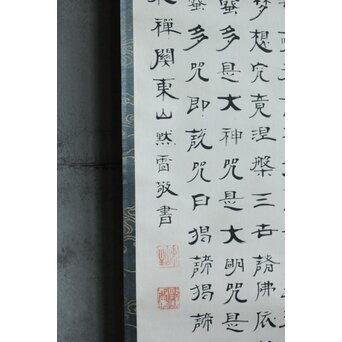 夢想究竟涅槃三世諸佛依
蜜多是大神咒是大明咒是
蜜多咒即說咒曰揭諦揭諦
禪関東山黙雷敬書